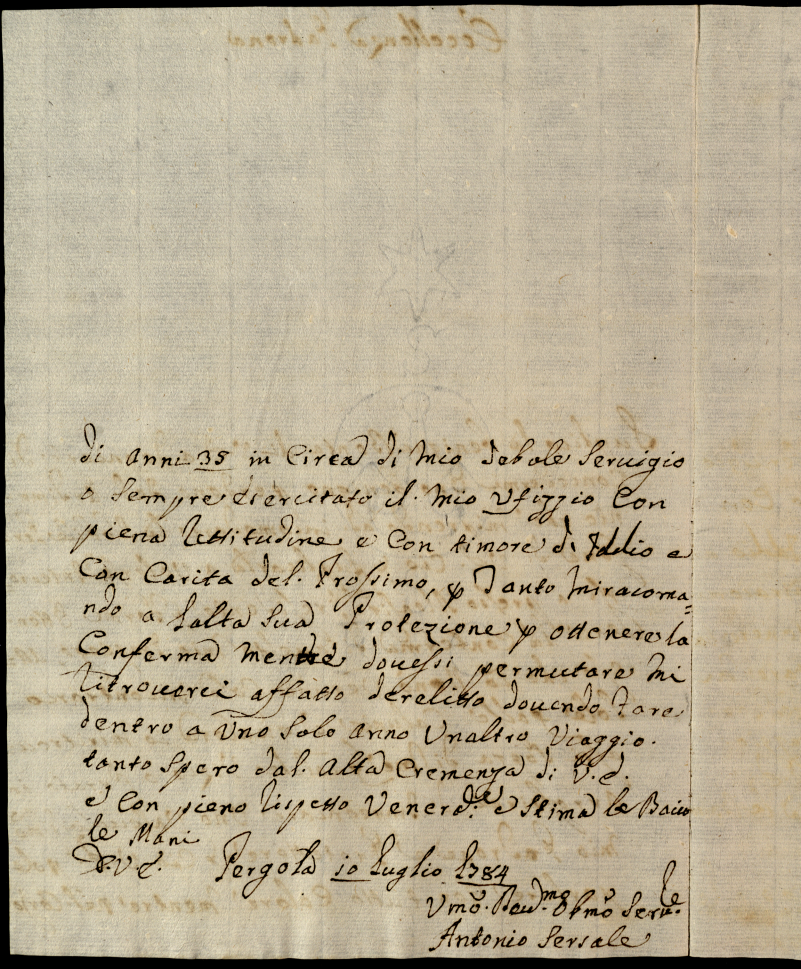 di anni 35 in Circa di mio debole Servigio
o Sempre esercitato il mio Vfizzio Con
piena Rettitudine e Con timore di Iddio e
Con Carita del Prossimo, p Tanto miracoma=
ndo a Lalta Sua Protezione p ottenere la
Conferma mentre dovessi permutare mi
Ritroverei affatto derelitto dovendo fare
dentro a Vno Solo anno Vnaltro Viaggio.
tanto Spero dal Alta Cremenza di V. E.
e Con pieno Rispetto Venerdi: e Stima le Bacio
le Mani
D. V. E. Pergola 10 Luglio 1784
Vmo. Devmo Obmo Serve
Antonio Sersale